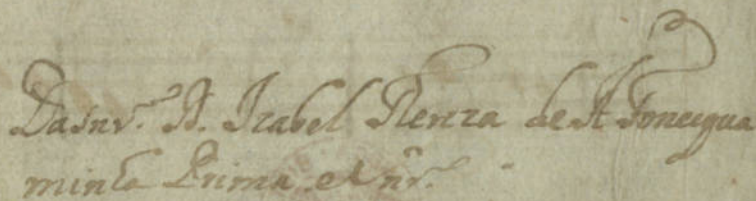 Da snrᵃ. D. Izabel Renza de A Foncequa
minha Prima e snrᵃ.